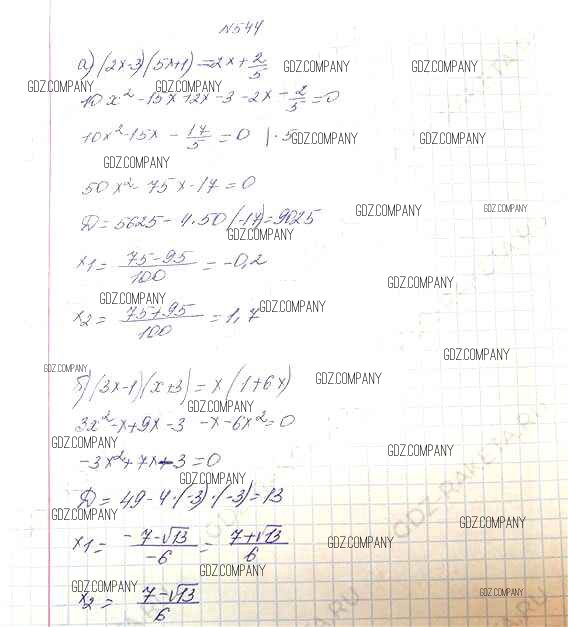 №544
а) (2x-3)(5x+1)=2x+2/5
GDZ.COMPANY GDZ.COMPANY
GDZ.COMPANY GDZ.COMPANY
10x²-15x+2x-3-2x-2/5=0
10x²-15x-17/5=0 |·5
GDZ.COMPANY GDZ.COMPANY
GDZ.COMPANY
50x²-75x-17=0
GDZ.COMPANY GDZ.COMPANY
Д=5625-4·50(-17)=9025
GDZ.COMPANY
x1=(75-95)/100=-0,2
GDZ.COMPANY
GDZ.COMPANY GDZ.COMPANY
x2=(75+95)/100=1,7
GDZ.COMPANY
GDZ.COMPANY GDZ.COMPANY
б) (3x-1)(x+3)=x(1+6x)
GDZ.COMPANY
3x²-x+9x-3-x-6x²=0
GDZ.COMPANY GDZ.COMPANY
-3x²+7x-3=0
GDZ.COMPANY
Д=49-4·(-3)·(-3)=13
GDZ.COMPANY GDZ.COMPANY
x1=(-7-√13)/-6=(7+√13)/6
GDZ.COMPANY
GDZ.COMPANY
GDZ.COMPANY GDZ.COMPANY
x2=(7-√13)/6